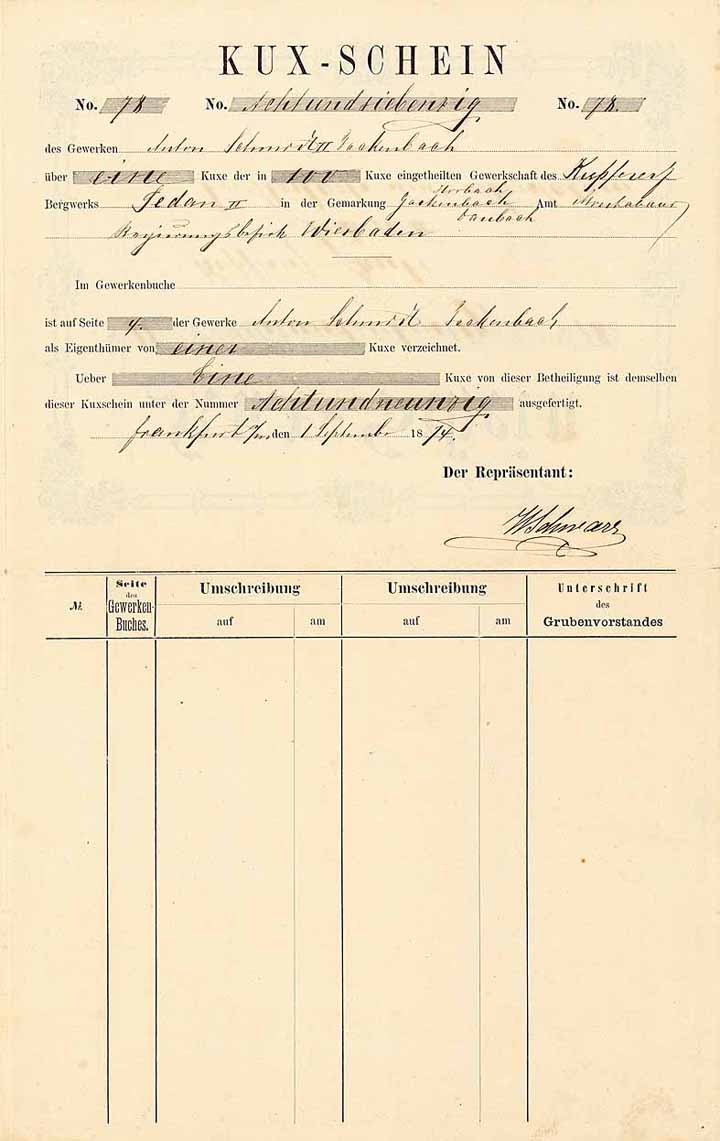 KUX-SCHEIN
No. 78 No. Achtundsiebenzig No. 78.
des Gewerken Anton Schmidt II
über eine Kuxe der in 100 Kuxe eingetheilten Gewerkschaft des Kupfererz
Horbach
Bergwerks Sedan II in der Gemarkung Amt Montabaur
Daubach
Regierungsbezirk Wiesbaden
Im Gewerkenbuche
ist auf Seite 4. der Gewerke Anton Schmidt
als Eigenthümer von einer Kuxe verzeichnet.
Ueber Eine Kuxe von dieser Betheiligung ist demselben
dieser Kuxschein unter der Nummer Achtundneunzig ausgefertigt.
Frankfurt a/m den 1 September 1874.
Der Repräsentant:
WSchwarz
№ Seite des Gewerken-Buches. Umschreibung Umschreibung Unterschrift des Grubenvorstandes
auf am auf am